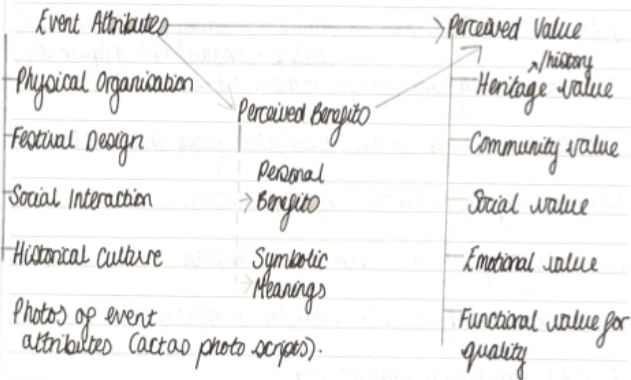 Event Attributes
Physical Organisation
Festival Design
Social Interaction
Historical Culture
Photos of event
attributes (act as photo scripts).
Perceived Benefits
Personal
Benefits
Symbolic
Meanings
Perceived Value
/history
Heritage value
Community value
Social value
Emotional value
Functional value for
quality